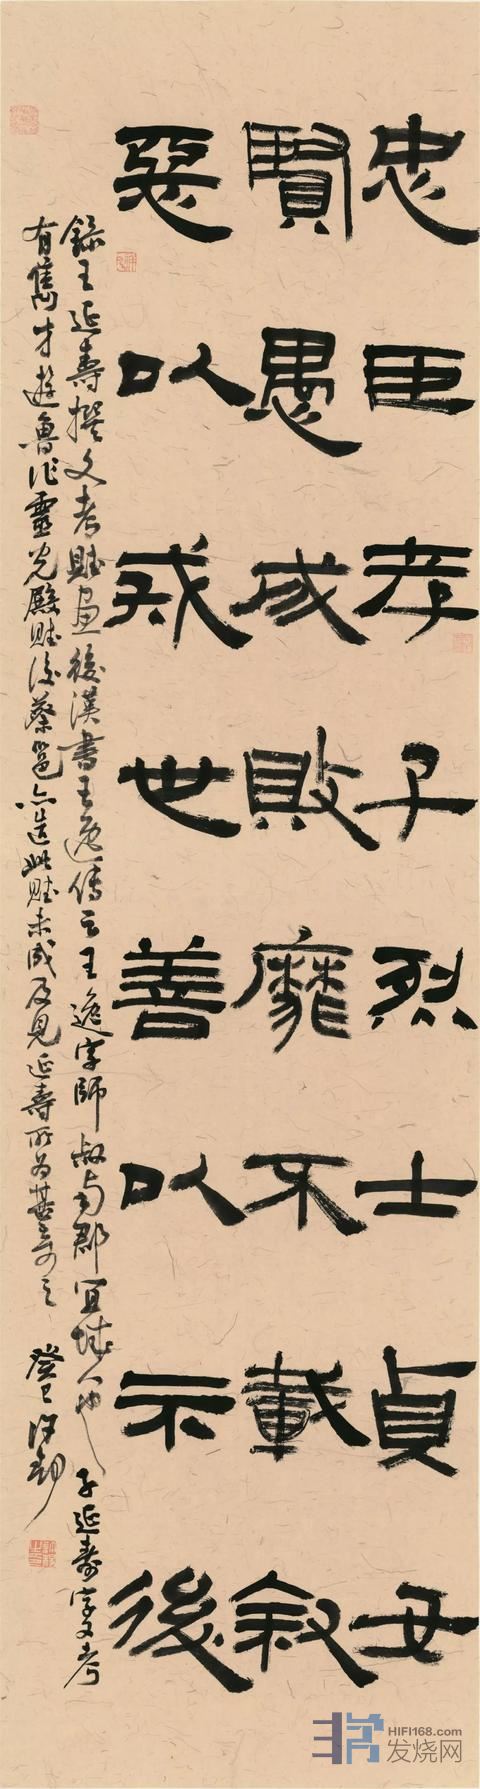 忠臣孝子烈士貞女
賢愚成敗靡不載叙
惡以戒世善以示後
錄王延壽撰文考賦畫後漢書王逸傳云王逸字師叔南郡宜城人也子延壽字文考
有雋才遊魯作靈光殿賦後蔡邕亦造此賦未成及見延壽所為甚奇之
癸巳
HIFI168.com
发烧网